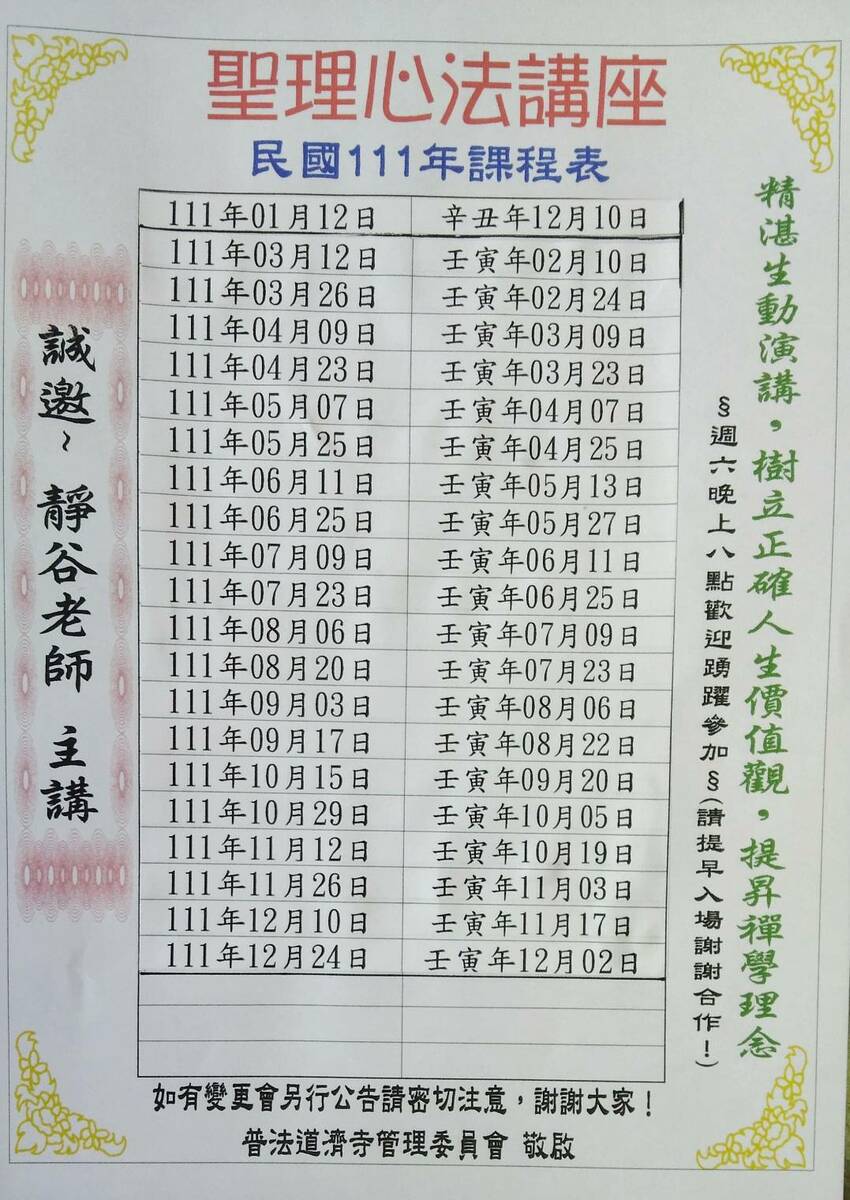 聖理心法講座
民國111年課程表
111年01月12日 辛丑年12月10日
111年03月12日 壬寅年02月10日
111年03月26日 壬寅年02月24日
111年04月09日 壬寅年03月09日
111年04月23日 壬寅年03月23日
111年05月07日 壬寅年04月07日
111年05月25日 壬寅年04月25日
111年06月11日 壬寅年05月13日
111年06月25日 壬寅年05月27日
111年07月09日 壬寅年06月11日
111年07月23日 壬寅年06月25日
111年08月06日 壬寅年07月09日
111年08月20日 壬寅年07月23日
111年09月03日 壬寅年08月06日
111年09月17日 壬寅年08月22日
111年10月15日 壬寅年09月20日
111年10月29日 壬寅年10月05日
111年11月12日 壬寅年10月19日
111年11月26日 壬寅年11月03日
111年12月10日 壬寅年11月17日
111年12月24日 壬寅年12月02日
精湛生動演講，樹立正確人生價值觀，提昇禪學理念
§週六晚上八點歡迎踴躍參加§(請提早入場謝謝合作！)
誠邀~ 靜谷老師 主講
如有變更會另行公告請密切注意，謝謝大家！
普法道濟寺管理委員會 敬啟